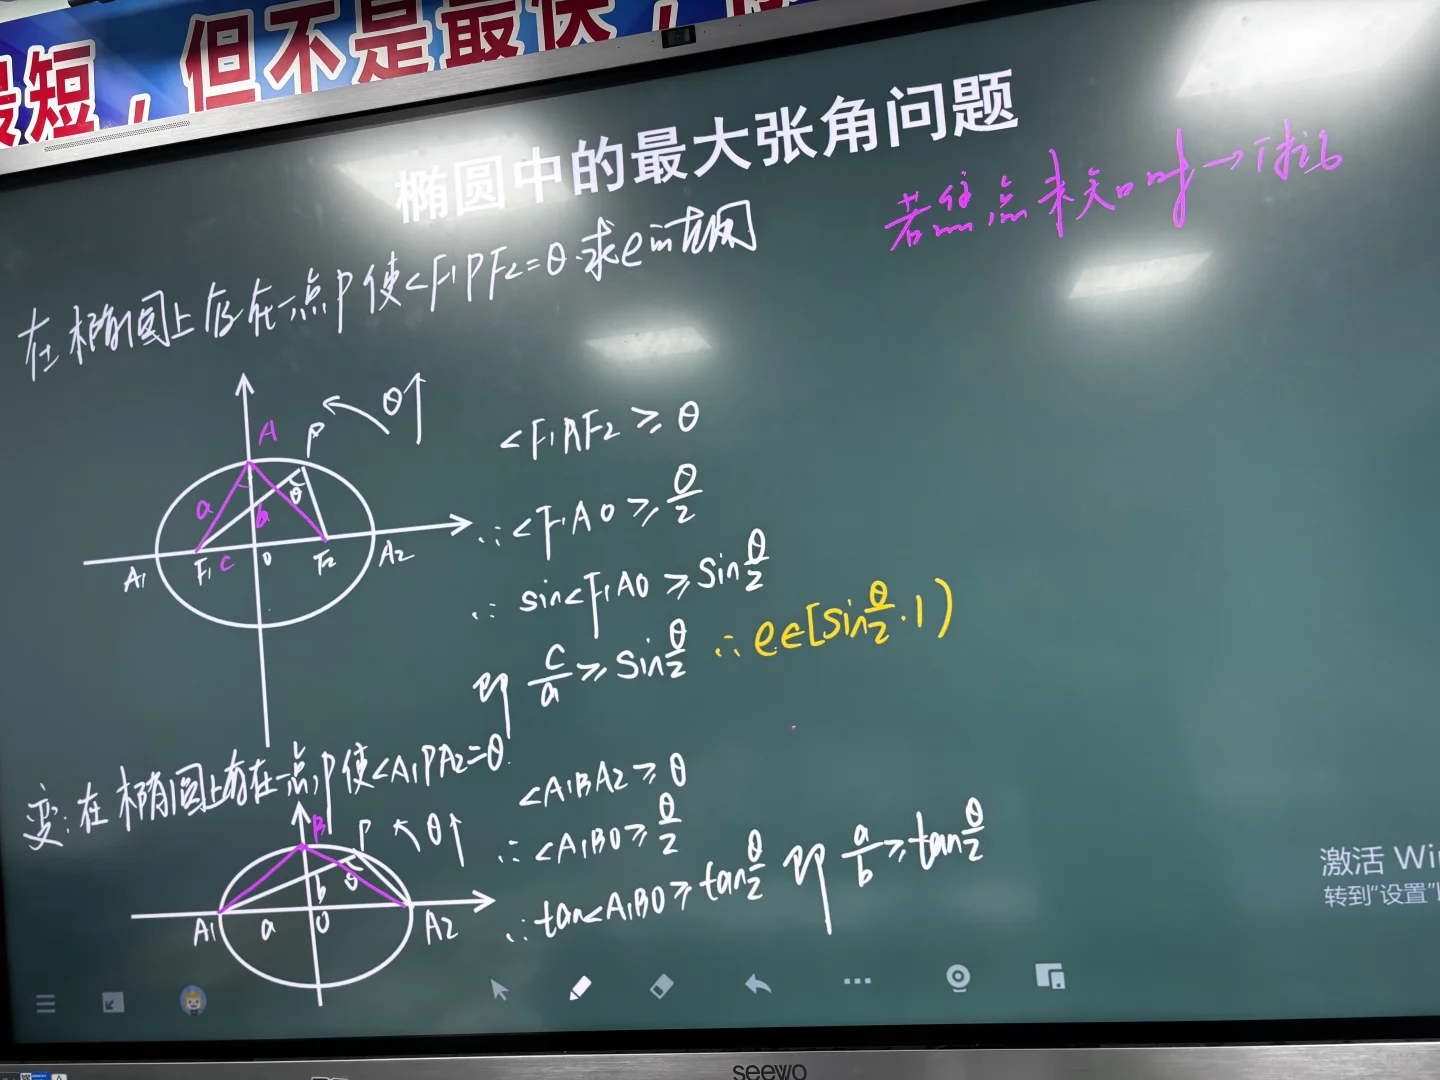 最短，但不是最快，
椭圆中的最大张角问题
若焦点未知时→讨论
在椭圆上存在一点P使<F₁PF₂=θ.求e的范围
θ↑
A
P
θ
a
b
A₁
F₁
C
O
F₂
A₂
<F₁AF₂≥θ
∴<F₁AO≥θ/2
∴ sin<F₁AO≥sinθ/2
即 c/a≥sinθ/2 ∴e∈[sinθ/2.1)
变:在椭圆上存在一点P使<A₁PA₂=θ.
B
P
θ↑
θ
b
A₁
a
O
A₂
<A₁BA₂≥θ
∴<A₁BO≥θ/2
∴tan<A₁BO≥tanθ/2 即 a/b≥tanθ/2
激活 Win
转到"设置"
seewo